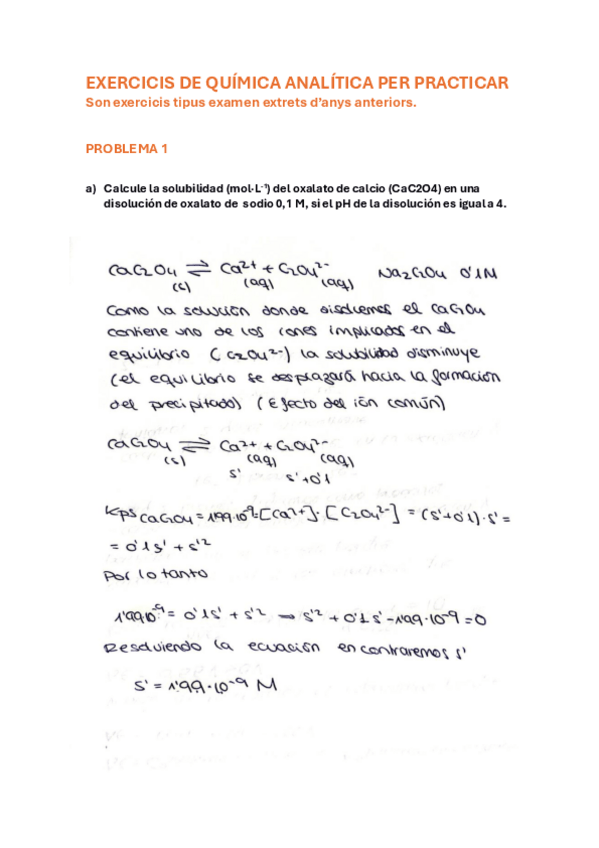 EXERCICIS DE QUÍMICA ANALÍTICA PER PRACTICAR
Son exercicis tipus examen extrets d'anys anteriors.
PROBLEMA 1
a) Calcule la solubilidad (mol·L⁻¹) del oxalato de calcio (CaC2O4) en una
disolución de oxalato de sodio 0,1 M, si el pH de la disolución es igual a 4.
CaC₂O₄ ⇌ Ca²⁺ + C₂O₄²⁻ Na₂C₂O₄ 0'1M
(s) (aq) (aq)
Como la solución donde disolvemos el CaC₂O₄
contiene uno de los iones implicados en el
equilibrio (C₂O₄²⁻) la solubilidad disminuye
(el equilibrio se desplazará hacia la formación
del precipitado) (Efecto del ión común)
CaC₂O₄ ⇌ Ca²⁺ + C₂O₄²⁻
(s) (aq) (aq)
s' s'+0'1
Kps CaC₂O₄ = 1'99·10⁻⁹ = [Ca²⁺]·[C₂O₄²⁻] = (s'+0'1)·s' =
= 0'1s' + s'²
Por lo tanto
1'99·10⁻⁹ = 0'1s' + s'² → s'² + 0'1s' - 1'99·10⁻⁹ = 0
Resolviendo la ecuación encontraremos s'
s' = 1'99·10⁻⁹ M